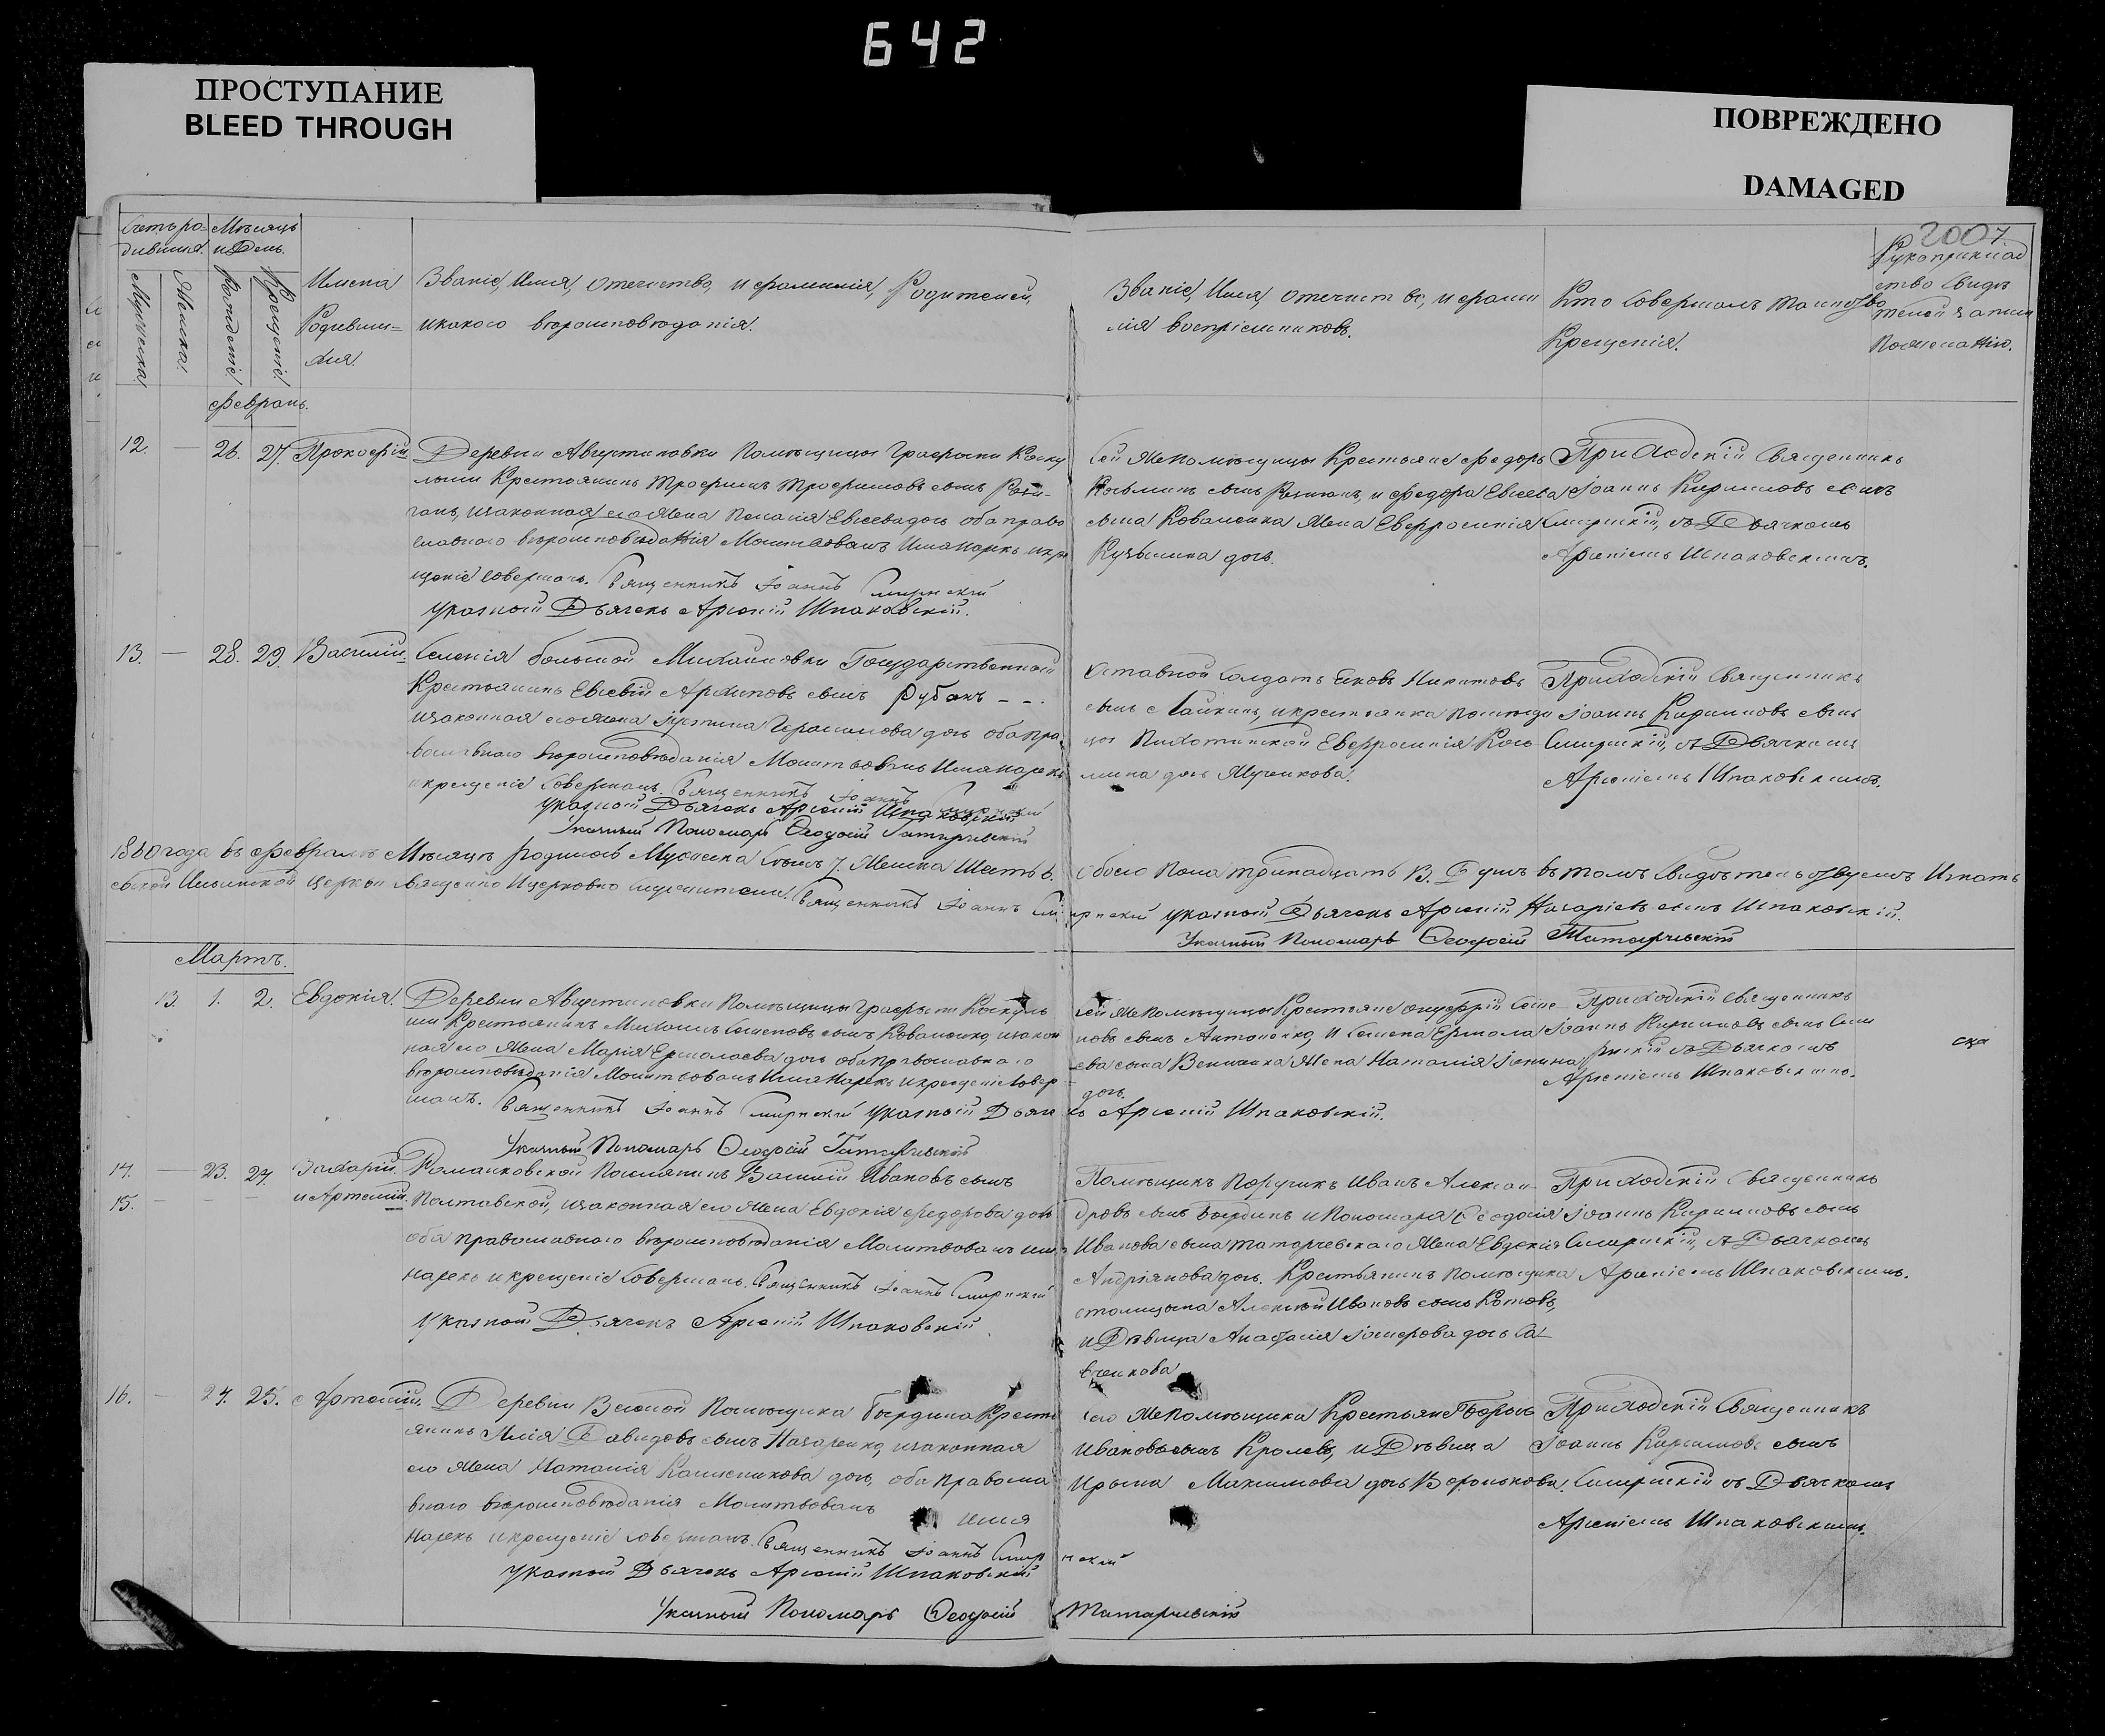 642
ПРОСТУПАНИЕ
BLEED THROUGH
ПОВРЕЖДЕНО
DAMAGED
2007.
Мѣсяцъ
и День.
Имена
Родивши=
хся.
Званіе, Имя, Отечество, и фамилія, Родителей,
и какого вѣроисповѣданія.
Званіе, Имя, отечество, и фами
лія воспріемниковъ.
Кто Совершалъ таинство
Крещенія.
Рукоприклад
ство Свидѣ
телей записи
По желанію.
Февраль.
12. — 26. 27. Прокофій
Деревни Августиновки Помѣщицы Графини
Крестьянинъ Трофимъ Трофимовъ сынъ
законная его жена Евсеева дочь оба право
славного вѣроисповѣданія Молитвовалъ Имя Нарекъ и кре
щеніе совершалъ. Священникъ Іоаннъ Смирнскій
Указной Дьячекъ Арсеній Шпаковскій.
сей же Помѣщицы Крестьяне Федоръ
сынъ и Федора Евсеева
сына Коваленка Жена Евфросинія
Кузьмина дочь.
Приходскій Священникъ
Іоаннъ Кириловъ сынъ
Смирнскій, съ Дьячкомъ
Арсеніемъ Шпаковскимъ.
13. — 28. 29. Василій
Селенія большой Михайловки Государственной
Крестьянинъ Евсевій Архиповъ сынъ Рубанъ - - .
законная его жена Устина Герасимова дочь оба пра
вославного вѣроисповѣданія Молитвовалъ Имя Нарекъ
и крещеніе Совершалъ. Священникъ Іоаннъ Смирнскій
Указной Дьячекъ Арсеній Шпаковскій
Указный Пономарь Ѳеодосій Татарчевскій
Отставной Солдатъ Яковъ Никитовъ
сынъ и крестьянка помѣщи
цы Евфросинія
мина дочь
Приходскій Священникъ
Іоаннъ Кириловъ сынъ
Смирнскій, съ Дьячкомъ
Арсеніемъ Шпаковскимъ.
1860 года въ Февралѣ Мѣсяцѣ родилось Мужеска Семь 7. Женска Шесть 6. Обоего Пола тринадцать 13. Душъ въ томъ Свидѣтельствуемъ
церкви Священно и Церковно служители. Священникъ Іоаннъ Смирнскій указной Дьячекъ Арсеній Назаріевъ сынъ Шпаковскій.
Указный Пономарь Ѳеодосій Татарчевскій
Мартъ.
13. 1. 2. Евдокія.
Деревни Августиновки Помѣщицы Графини
Крестьянинъ Михаилъ Семеновъ сынъ Коваленко, закон
ная его Жена Марія Ермолаева дочь оба Православнаго
вѣроисповѣданія Молитвовалъ Имя Нарекъ и крещеніе Совер
шалъ. Священникъ Іоаннъ Смирнскій указной Дьячекъ Арсеній Шпаковскій.
Указный Пономарь Ѳеодосій Татарчевскій
сей же Помѣщицы Крестьяне Онуфрій Семе
новъ сынъ Антоненко, и Семена Ермола
ева сына Жена Наталія
дочь.
Приходскій Священникъ
Іоаннъ Кириловъ сынъ Сми
рнскій съ Дьячкомъ
Арсеніемъ Шпаковскимъ.
14. — 23. 24. Захарій
15. — — — и Артемій.
Романковской Поселянинъ Василій Ивановъ сынъ
Полтавской, законная его жена Евдокія Федорова дочь
оба православнаго вѣроисповѣданія Молитвовалъ имя
нарекъ и крещеніе Совершалъ. Священникъ Іоаннъ Смирнскій
указной Дьячекъ Арсеній Шпаковскій
Помѣщикъ Поручикъ Иванъ Алексан
дровъ сынъ и Пономаря Ѳеодосія
Иванова сына Татарчевскаго Жена Евдокія
Андріянова дочь. Крестьянинъ помѣщика
Алексѣй Ивановъ сынъ Котовъ,
и Дѣвица Анастасія дочь
Приходскій Священникъ
Іоаннъ Кириловъ сынъ
Смирнскій, съ Дьячкомъ
Арсеніемъ Шпаковскимъ.
16. — 24. 25. Артемій.
Деревни Помѣщика Крестья
янинъ Илія Давидовъ сынъ Назаренко, законная
его Жена Наталія дочь, оба правосла
внаго вѣроисповѣданія Молитвовалъ имя
нарекъ и крещеніе совершалъ. Священникъ Іоаннъ Смирнскій
указной Дьячекъ Арсеній Шпаковскій
Указный Пономарь Ѳеодосій Татарчевскій
сего же Помѣщика Крестьяне
Ивановъ сынъ и Дѣвица
Максимова дочь Воронькова.
Приходскій Священникъ
Іоаннъ Кириловъ сынъ
Смирнскій съ Дьячкомъ
Арсеніемъ Шпаковскимъ.